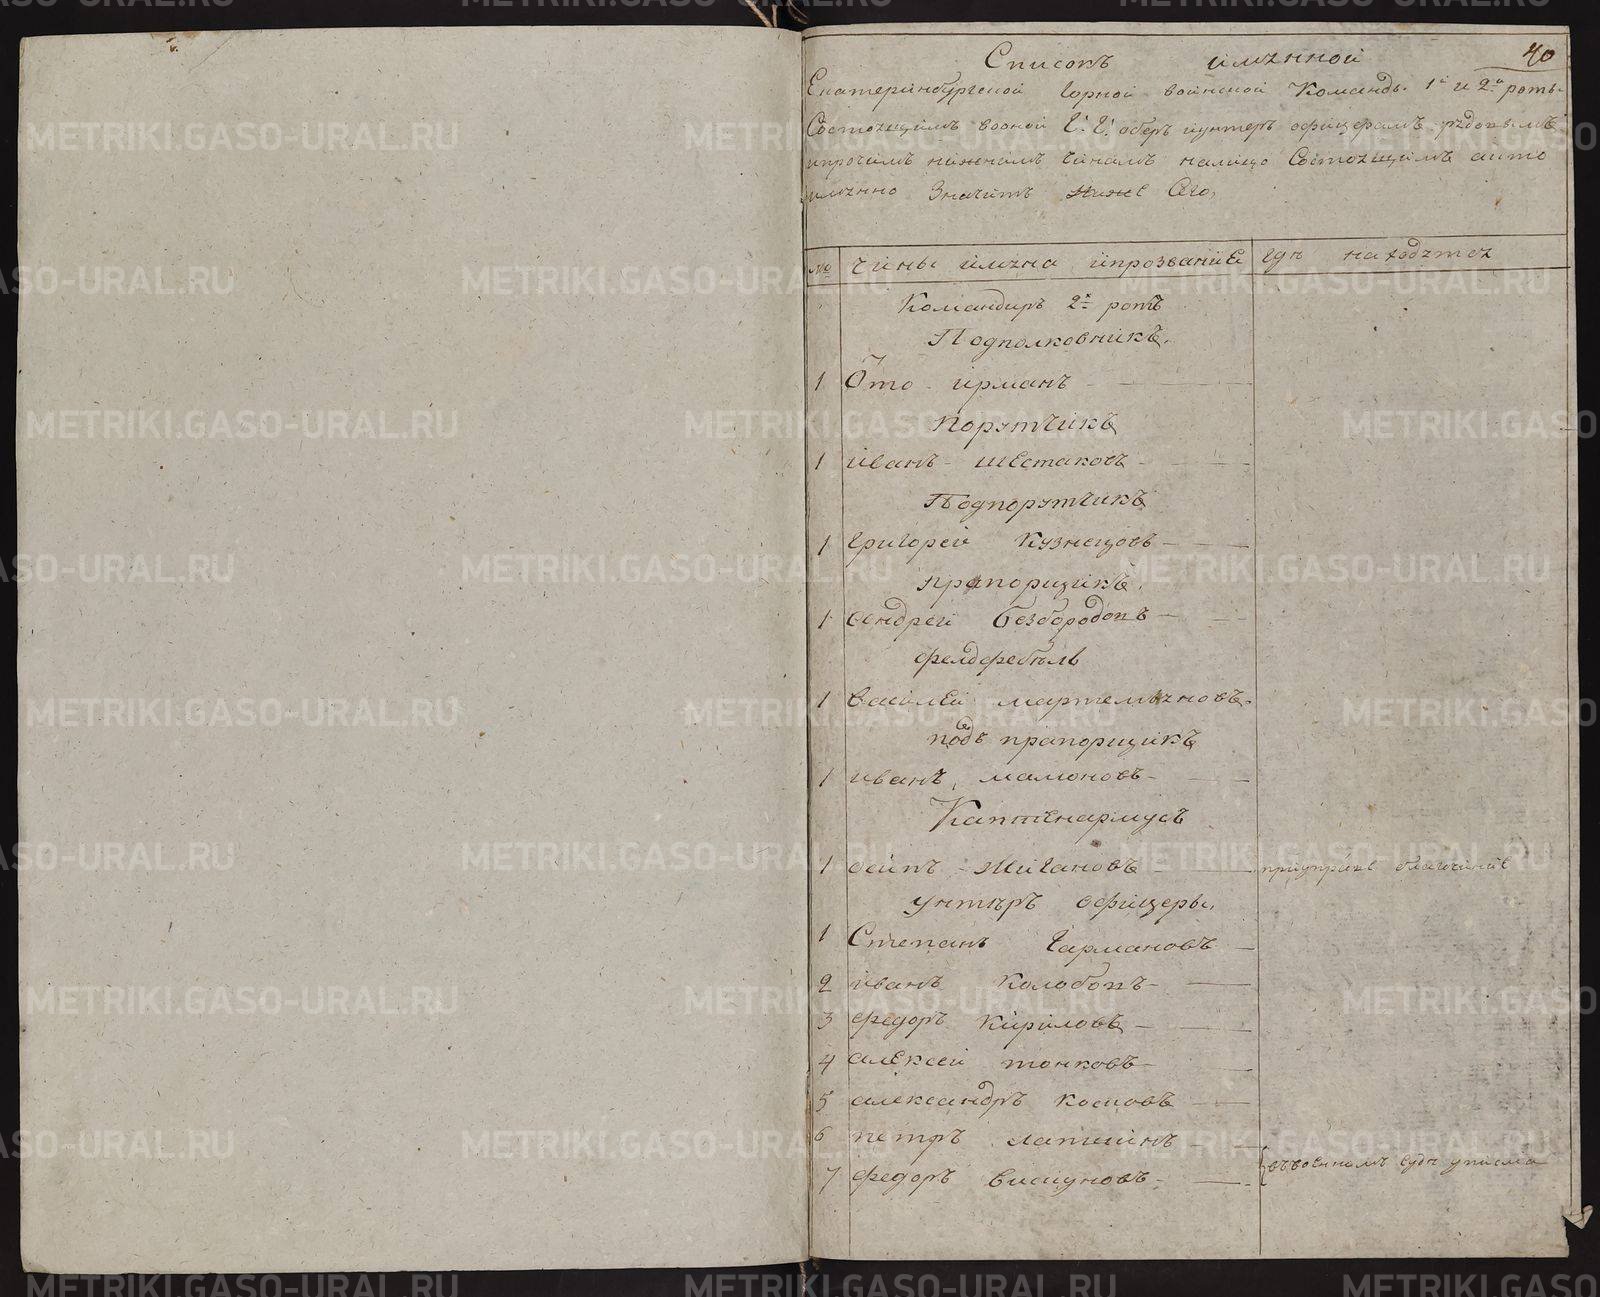 40
Списокъ имянной
Екатеринбургской Горной воинской Команды 1й и 2й ротъ
Состоящимъ воной Г: Г: оберъ иунтеръ офицерамъ рядовымъ
ипрочимъ нижнимъ чинамъ налицо Состоящимъ аиго
имянно Значитъ Ниже Сего,
№ Чины имяна ипрозвание гдѣ находятся
Командиръ 2й ротъ
Подполковникъ.
1 Ото ирманъ
Порутчикъ
1 иванъ шестаковъ
Подпорутчикъ
1 григорей Кузнецовъ
прапорщикъ.
1 андрей безбородовъ
фелдфебель
1 василей мартемьяновъ
подъ прапорщикъ
1 иванъ мамоновъ
Каптенармусъ
1 осипъ Жигановъ
унтѣръ офицеры.
1 Степанъ Гармановъ
2 иванъ Колобовъ
3 федоръ Кириловъ
4 алексей тонковъ
5 александръ Косковъ
6 петръ лапшинъ
7 федоръ висуновъ въвоенномъ судѣ уписма
METRIKI.GASO-URAL.RU